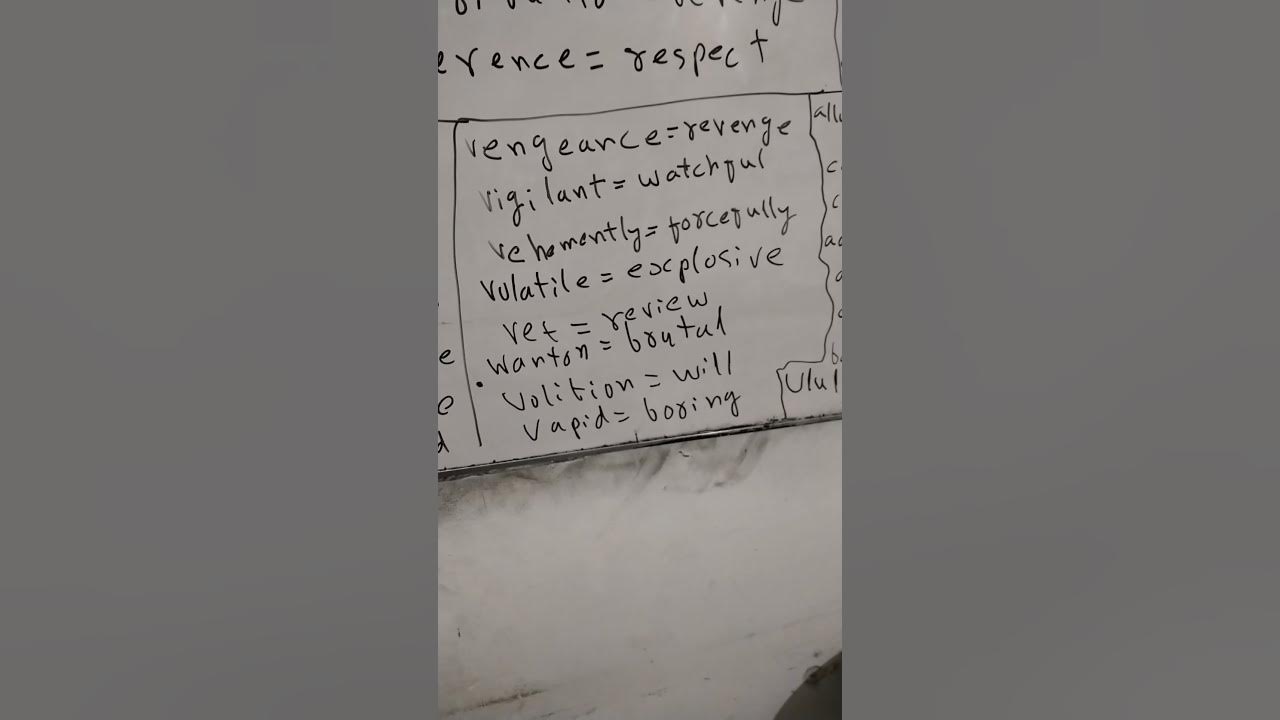 erence = respect
vengeance = revenge
vigilant = watchful
vehemently = forcefully
volatile = explosive
vet = review
wanton = brutal
volition = will
vapid = boring
Ulul